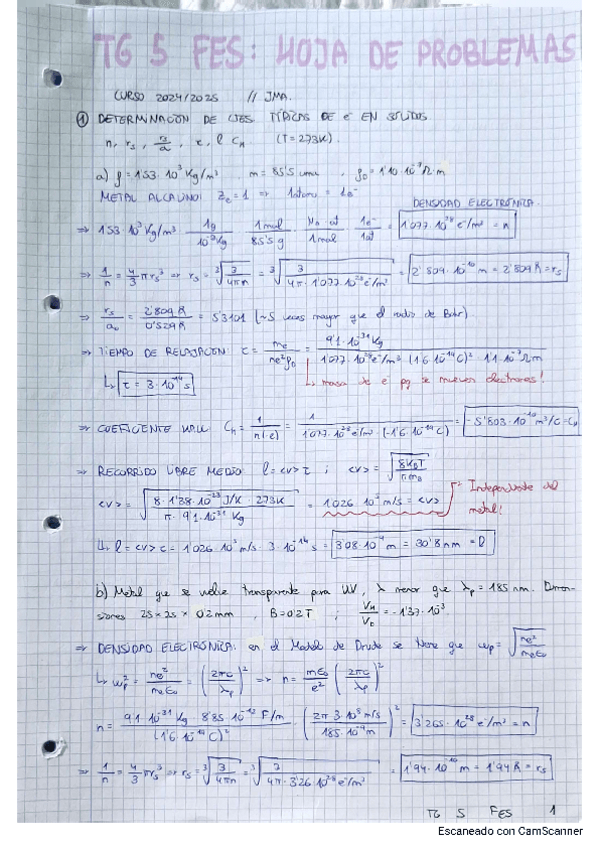 TG 5 FES: HOJA DE PROBLEMAS
CURSO 2024/2025 // JMA.
① DETERMINACIÓN DE CTES. TÍPICAS DE e⁻ EN SÓLIDOS
n, r_s, r_s/a, τ, l C_H (T=273K)
a) ρ = 1'53·10³ Kg/m³, m = 85'5 uma, ρ₀ = 1'10·10⁻⁷ Ω·m
METAL ALCALINO: Z_e = 1 ⇒ 1 átomo = 1e⁻
DENSIDAD ELECTRÓNICA
⇒ 1'53·10³ Kg/m³ · 1g/10⁻³Kg · 1mol/85'5g · N_A at/1mol · 1e⁻/1at = 1'077·10²⁸ e⁻/m³ = n
⇒ 1/n = 4/3 πr_s³ ⇒ r_s = ³√(3/4πn) = ³√(3/4π·1'077·10²⁸e⁻/m³) = 2'809·10⁻¹⁰ m = 2'809 Å = r_s
⇒ r_s/a₀ = 2'809 Å/0'529 Å = 5'3101 (~5 veces mayor que el radio de Bohr).
⇒ TIEMPO DE RELAJACIÓN τ = m_e/ne²ρ₀ = 9'1·10⁻³¹ Kg/1'077·10²⁸e⁻/m³ (1'6·10⁻¹⁹C)² · 1'1·10⁻⁷Ωm
↳ τ = 3·10⁻¹⁴ s ↳ masa de e⁻ pq se mueven electrones!
⇒ COEFICIENTE HALL C_H = 1/n(-e) = 1/1'077·10²⁸e⁻/m³ (-1'6·10⁻¹⁹C) = -5'803·10⁻¹⁰ m³/C = C_H
⇒ RECORRIDO LIBRE MEDIO l = <v> τ ; <v> = √(8K_BT/πm_e)
<v> = √(8·1'38·10⁻²³ J/K · 273K/π·9'1·10⁻³¹ Kg) = 1'026·10⁵ m/s = <v> Independiente del metal!
↳ l = <v> τ = 1'026·10⁵ m/s · 3·10⁻¹⁴ s = 3'08·10⁻⁹ m = 30'8 nm = l
b) Metal que se vuelve transparente para UV, λ menor que λ_p = 185 nm. Dimen-
siones 25 × 25 × 0'2 mm, B = 0'2T ; V_H/V_0 = -1'37·10⁻³.
⇒ DENSIDAD ELECTRÓNICA: en el Modelo de Drude se tiene que ω_p = √(ne²/m_eε₀)
↳ ω_p² = ne²/m_eε₀ = (2πc/λ_p)² ⇒ n = mε₀/e² (2πc/λ_p)²
n = 9'1·10⁻³¹ Kg 8'85·10⁻¹² F/m/(1'6·10⁻¹⁹C)² · (2π·3·10⁸ m/s/185·10⁻⁹m)² = 3'265·10²⁸ e⁻/m³ = n
⇒ 1/n = 4/3 πr_s³ ⇒ r_s = ³√(3/4πn) = ³√(3/4π·3'26·10²⁸e⁻/m³) = 1'94·10⁻¹⁰ m = 1'94 Å = r_s
TG 5 FES 1
Escaneado con CamScanner